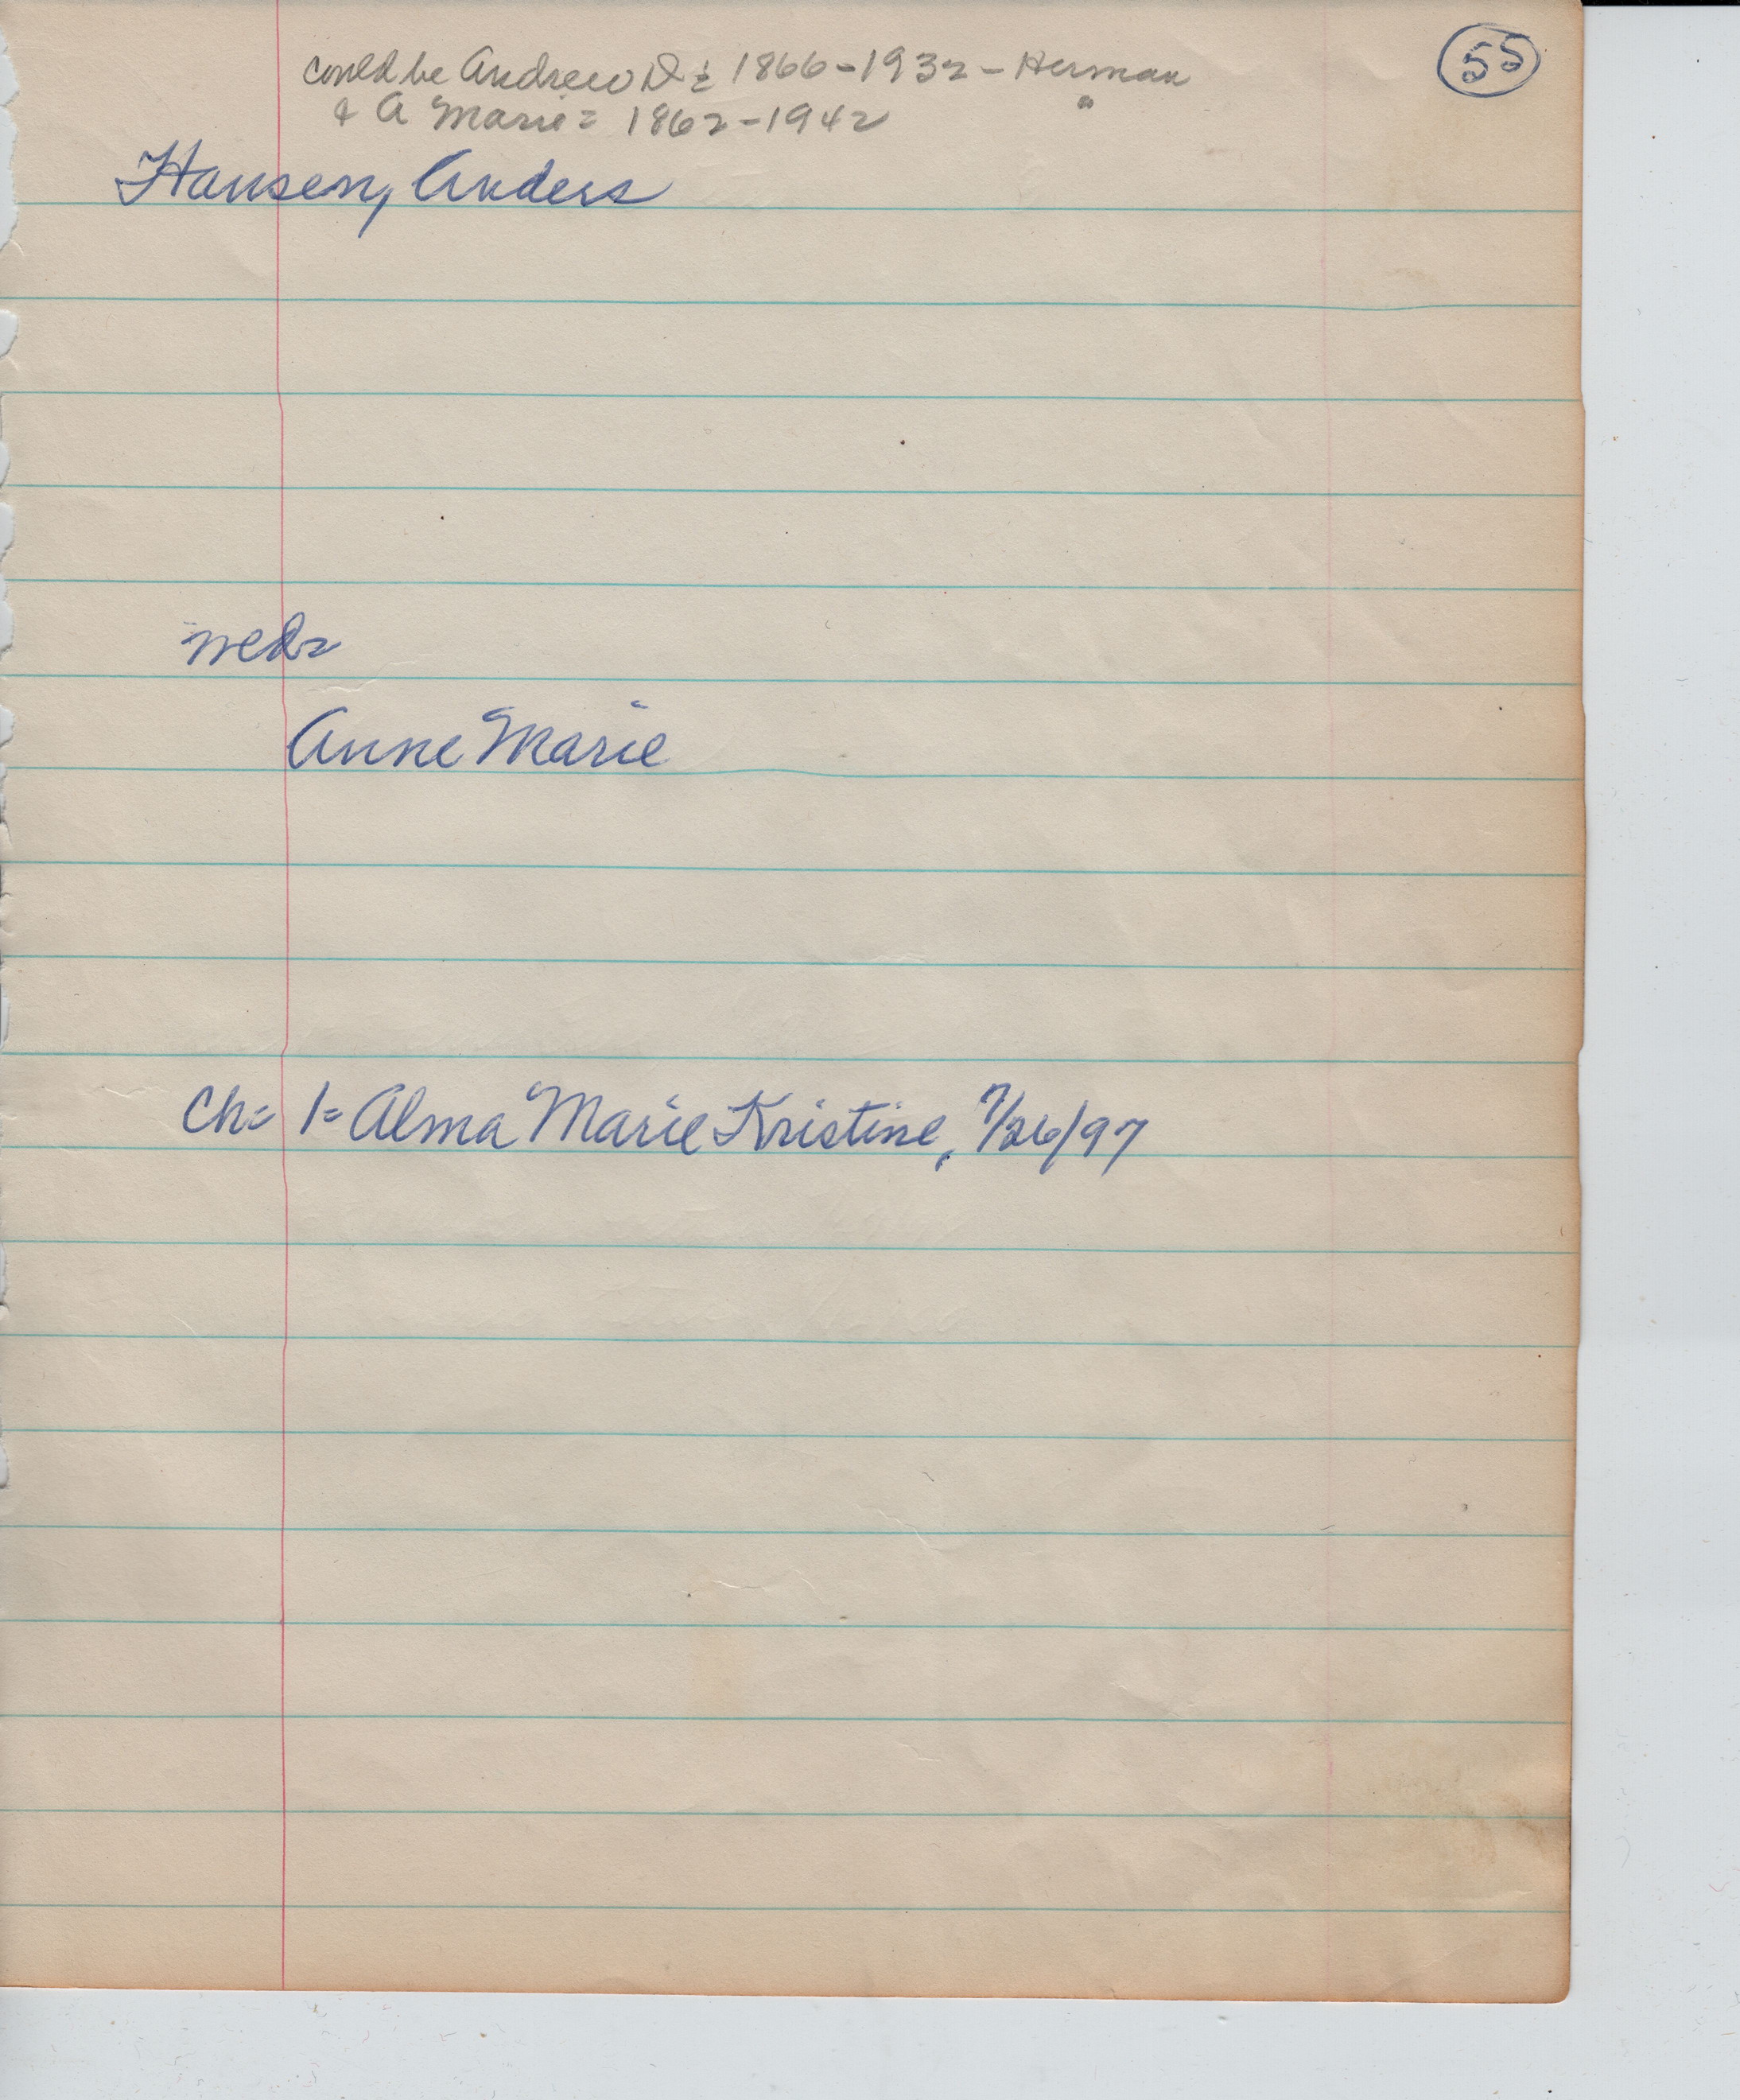 55
could be Andrew D= 1866-1932 - Herman
& A Marie= 1862-1942 "
Hansen, Anders
wed=
Anne Marie
Ch= 1= Alma Marie Kristine, 7/26/97